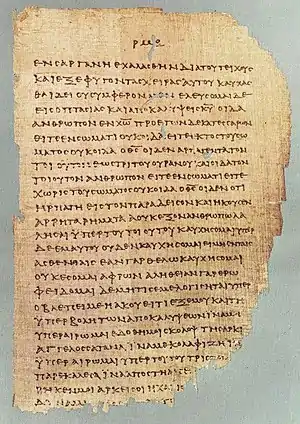 ΕΝ ΣΑΡΓΑΝΗ ΕΧΑΛΑΣΘΗΝ ΔΙΑ ΤΟΥ ΤΕΙΧΟΥΣ
ΚΑΙ ΕΞΕΦΥΓΟΝ ΤΑΣ ΧΕΙΡΑΣ ΑΥΤΟΥ ΚΑΥΧΑΣ
ΘΑΙ ΔΕΙ ΟΥ ΣΥΜΦΕΡΟΝ ΕΛΕΥΣΟΜΑΙ ΔΕ
ΕΙΣ ΟΠΤΑΣΙΑΣ ΚΑΙ ΟΙΔΑ
ΑΝΘΡΩΠΟΝ ΕΝ ΧΩ ΠΡΟ ΕΤΩΝ ΔΕΚΑΤΕΣΣΑΡΩΝ
ΕΙΤΕ ΕΝ ΣΩΜΑΤΙ ΟΥΚ ΟΙΔΑ ΕΙΤΕ ΕΚΤΟΣ ΤΟΥ ΣΩ
ΜΑΤΟΣ ΟΥΚ ΟΙΔΑ Ο ΘΣ ΟΙΔΕΝ ΑΡΠΑΓΕΝΤΑ ΤΟΝ
ΤΟΙΟΥΤΟΝ ΕΩΣ ΤΡΙΤΟΥ ΟΥΡΑΝΟΥ ΚΑΙ ΟΙΔΑ ΤΟΝ
ΤΟΙΟΥΤΟΝ ΑΝΘΡΩΠΟΝ ΕΙΤΕ ΕΝ ΣΩΜΑΤΙ ΕΙΤΕ
ΧΩΡΙΣ ΤΟΥ ΣΩΜΑΤΟΣ ΟΥΚ ΟΙΔΑ Ο ΘΣ ΟΙΔΕΝ ΟΤΙ
ΗΡΠΑΓΗ ΕΙΣ ΤΟΝ ΠΑΡΑΔΕΙΣΟΝ ΚΑΙ ΗΚΟΥΣΕΝ
ΑΡΡΗΤΑ ΡΗΜΑΤΑ Α ΟΥΚ ΕΞΟΝ ΑΝΘΡΩΠΩ ΛΑ
ΛΗΣΑΙ ΥΠΕΡ ΤΟΥ ΤΟΙΟΥΤΟΥ ΚΑΥΧΗΣΟΜΑΙ ΥΠΕΡ
ΔΕ ΕΜΑΥΤΟΥ ΟΥΔΕΝ ΚΑΥΧΗΣΟΜΑΙ ΕΙ ΜΗ ΕΝ ΤΑΙΣ
ΑΣΘΕΝΕΙΑΙΣ ΕΑΝ ΓΑΡ ΘΕΛΩ ΚΑΥΧΗΣΟΜΑΙ
ΟΥΚ ΕΣΟΜΑΙ ΑΦΡΩΝ ΑΛΗΘΕΙΑΝ ΓΑΡ ΕΡΩ
ΦΕΙΔΟΜΑΙ ΔΕ ΜΗ ΤΙΣ ΕΜΕ ΛΟΓΙΣΗΤΑΙ ΥΠΕΡ
Ο ΒΛΕΠΕΙ ΜΕ Η ΑΚΟΥΕΙ ΤΙ ΕΞ ΕΜΟΥ ΚΑΙ ΤΗ
ΥΠΕΡΒΟΛΗ ΤΩΝ ΑΠΟΚΑΛΥΨΕΩΝ ΙΝΑ ΜΗ
ΥΠΕΡΑΙΡΩΜΑΙ ΕΔΟΘΗ ΜΟΙ ΣΚΟΛΟΨ ΤΗ ΣΑΡΚΙ
ΑΓΓΕΛΟΣ ΣΑΤΑΝΑ ΙΝΑ ΜΕ ΚΟΛΑΦΙΖΗ ΙΝΑ ΜΗ
ΥΠΕΡΑΙΡΩΜΑΙ ΥΠΕΡ ΤΟΥΤΟΥ ΤΡΙΣ
ΠΑΡΕΚΑΛΕΣΑ ΙΝΑ ΑΠΟΣΤΗ ΑΠ
ΚΕΝ ΜΟΙ ΑΡΚΕΙ ΣΟΙ Η ΧΑΡΙΣ